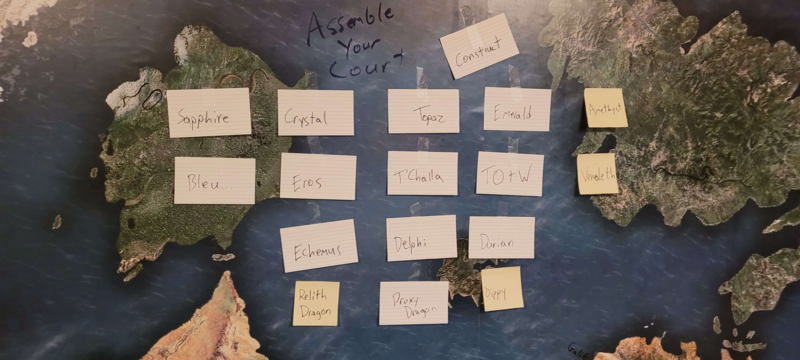 Assemble
Your
Court
Construct
Sapphire
Crystal
Topaz
Emerald
Amethyst
Bleu...
Eros
T'Challa
TO+W
Echemus
Delphi
Durian
Relith
Dragon
Proxy
Dragon
Dippy